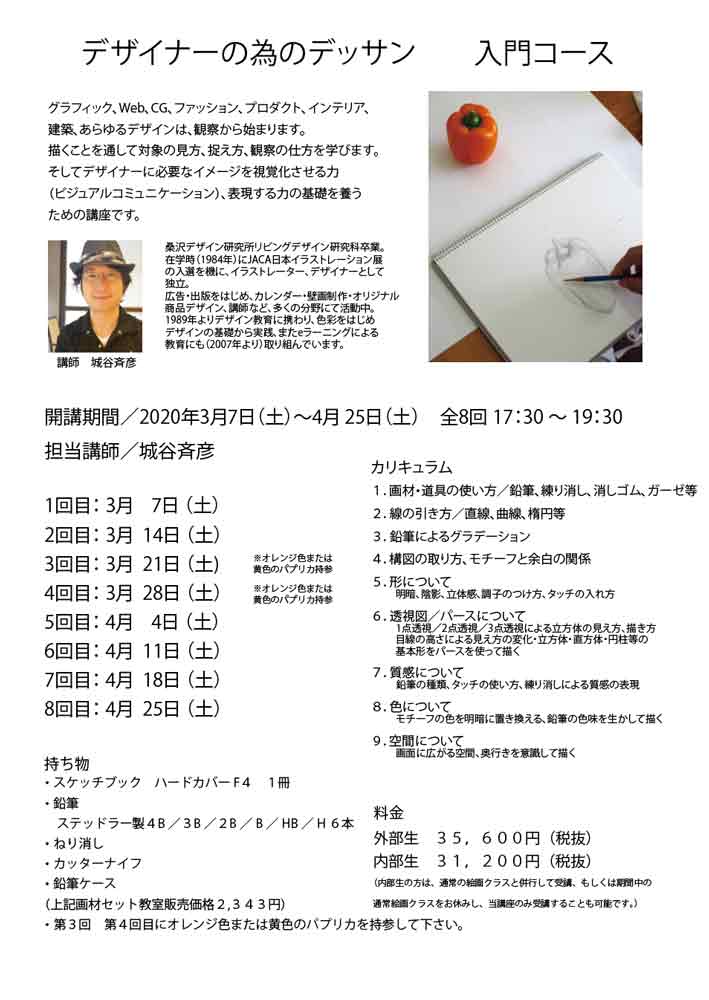 デザイナーの為のデッサン　　入門コース
グラフィック、Web、CG、ファッション、プロダクト、インテリア、
建築、あらゆるデザインは、観察から始まります。
描くことを通して対象の見方、捉え方、観察の仕方を学びます。
そしてデザイナーに必要なイメージを視覚化させる力
（ビジュアルコミュニケーション）、表現する力の基礎を養う
ための講座です。
桑沢デザイン研究所リビングデザイン研究科卒業。
在学時（1984年）にJACA日本イラストレーション展
の入選を機に、イラストレーター、デザイナーとして
独立。
広告・出版をはじめ、カレンダー・壁画制作・オリジナル
商品デザイン、講師など、多くの分野にて活動中。
1989年よりデザイン教育に携わり、色彩をはじめ
デザインの基礎から実践、またeラーニングによる
教育にも（2007年より）取り組んでいます。
講師　城谷斉彦
開講期間／2020年3月7日（土）～4月25日（土）　全8回 17：30 ～ 19：30
担当講師／城谷斉彦
1回目： 3月　7日 （土）
2回目： 3月 14日 （土）
3回目： 3月 21日 （土)
※オレンジ色または
黄色のパプリカ持参
4回目： 3月 28日 （土）
※オレンジ色または
黄色のパプリカ持参
5回目： 4月　4日 （土）
6回目： 4月 11日 （土）
7回目： 4月 18日 （土）
8回目： 4月 25日 （土）
カリキュラム
１．画材・道具の使い方／鉛筆、練り消し、消しゴム、ガーゼ等
２．線の引き方／直線、曲線、楕円等
３．鉛筆によるグラデーション
４．構図の取り方、モチーフと余白の関係
５．形について
明暗、陰影、立体感、調子のつけ方、タッチの入れ方
６．透視図／パースについて
1点透視／2点透視／3点透視による立方体の見え方、描き方
目線の高さによる見え方の変化・立方体・直方体・円柱等の
基本形をパースを使って描く
７．質感について
鉛筆の種類、タッチの使い方、練り消しによる質感の表現
８．色について
モチーフの色を明暗に置き換える、鉛筆の色味を生かして描く
９．空間について
画面に広がる空間、奥行きを意識して描く
持ち物
・スケッチブック　ハードカバーF４　１冊
・鉛筆
ステッドラー製４B ／３B ／２B ／ B ／ HB ／ H ６本
・ねり消し
・カッターナイフ
・鉛筆ケース
（上記画材セット教室販売価格２，３４３円）
・第３回　第４回目にオレンジ色または黄色のパプリカを持参して下さい。
料金
外部生　３５，６００円（税抜）
内部生　３１，２００円（税抜）
（内部生の方は、通常の絵画クラスと併行して受講、もしくは期間中の
通常絵画クラスをお休みし、当講座のみ受講することも可能です。）